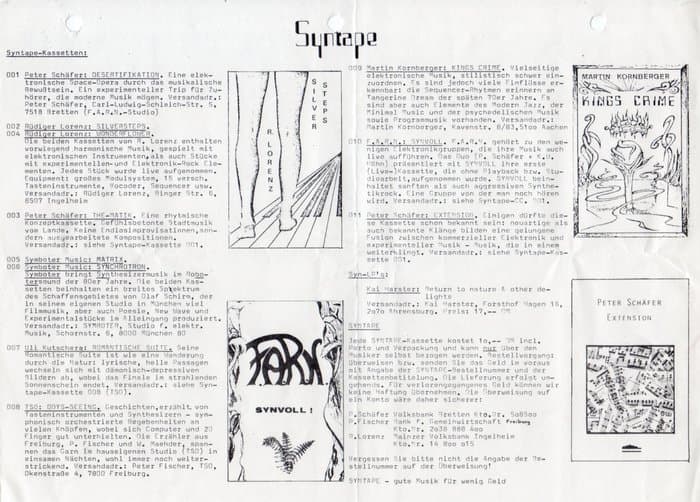 Syntape
Syntape-Kassetten:
001 Peter Schäfer: DESERTIFIKATION. Eine elek-
tronische Space-Opera durch das musikalische
Bewußtsein. Ein experimenteller Trip für Zu-
hörer, die moderne Musik mögen. Versandadr.:
Peter Schäfer, Carl-Ludwig-Schleich-Str. 5,
7518 Bretten (F.A.R.N.-Studio)
002 Rüdiger Lorenz: SILVERSTEPS.
004 Rüdiger Lorenz: WONDERFLOWER.
Die beiden Kassetten von R. Lorenz enthalten
vorwiegend harmonische Musik, gespielt mit
elektronischen Instrumenten, als auch Stücke
mit experimentellen- und Elektronik-Rock Ele-
menten. Jedes Stück wurde live aufgenommen.
Equipment: großes Modulsystem, 15 versch.
Tasteninstrumente, Vocoder, Sequenzer usw.
Versandadr.: Rüdiger Lorenz, Binger Str. 6,
6507 Ingelheim
003 Peter Schäfer: THE-MATIK. Eine rhytmische
Konzeptkassette, gefühlsbetonte Stadtmusik
vom Lande. Keine Endlosimprovisationen, son-
dern ausgearbeitete Kompositionen.
Versandadr.: siehe Syntape-Kassette 001.
005 Symboter Music: MATRIX.
006 Symboter Music: SYNCHROTRON.
Symboter bringt Synthesizermusik im Robo-
tersound der 80er Jahre. Die beiden Kas-
setten beinhalten ein breites Spektrum
des Schaffensgebietes von Olaf Schirm, der
in seinem eigenen Studio in München viel
Filmmusik, aber auch Poesie, New Wave und
Experimentalstücke im Alleingang produziert.
Versandadr.: SYMBOTER, Studio f. elektr.
Musik, Schornstr. 6, 8000 München 80
007 Uli Kutschera: ROMANTISCHE SUITE. Seine
Romantische Suite ist wie eine Wanderung
durch die Natur: lyrische, helle Passagen
wechseln sich mit dämonisch-depressiven
Bildern ab, wobei das Finale im strahlenden
Sonnenschein endet. Versandadr.: siehe Syn-
tape-Kassette 008 (TSO).
008 TSO: ODYS-SEEING. Geschichten, erzählt von
Tasteninstrumenten und Synthesizern - syn-
phonisch orchestrierte Begebenheiten an
vielen Knöpfen, wobei sich Computer und 20
Finger gut unterhielten. Die Erzähler aus
Freiburg, P. Fischer und W. Maehder, span-
nen das Garn im hauseigenen Studio (TSO) in
einsamen Nächten, wohl immer noch weiter-
strickend. Versandadr.: Peter Fischer, TSO,
Okenstraße 4, 7800 Freiburg.
SILVER
STEPS
R. LORENZ
FARN
SYNVOLL !
009 Martin Kornberger: KINGS CRIME. Vielseitige
elektronische Musik, stilistisch schwer ein-
zuordnen. Es sind jedoch viele Einflüsse er-
kennbar: die Sequenzer-Rhytmen erinnern an
Tangerine Dream der späten 70er Jahre. Es
sind aber auch Elemente des Modern Jazz, der
Minimal Music und der psychedelischen Musik
sowie Programmusik vorhanden. Versandadr.:
Martin Kornberger, Kavenstr. 8/83, 5100 Aachen
010 F.A.R.N.: SYNVOLL. F.A.R.N. gehört zu den we-
nigen Elektronikgruppen, die ihre Musik auch
live aufführen. Das Duo (P. Schäfer + K.U.
Röhn) präsentiert mit SYNVOLL ihre erste
(Live-)Kassette, die ohne Playback bzw. Stu-
diozusatz aufgenommen wurde. SYNVOLL bein-
haltet sanften als auch aggressiven Synthe-
tikrock. Eine Gruppe von der man noch hören
wird. Versandadr.: siehe Syntape-CC. 001.
011 Peter Schäfer: EXTENSION. Einigen dürfte die-
se Kassette schon bekannt sein: neuartige als
auch bekannte Klänge bilden eine gelungene
Fusion zwischen kommerzieller Elektronik und
experimenteller Musik - Musik, die in einem
weiterklingt. Versandadr.: siehe Syntape-Kas-
sette 001.
Syn-LP's:
Kai Harster: Return to nature & other de-
lights
Versandadr.: Kai Harster, Forsthof Hagen 16,
2070 Ahrensburg. Preis: 17,-- DM
SYNTAPE
Jede SYNTAPE-Kassette kostet 10,-- DM incl.
Porto und Verpackung und kann nur über den
Musiker selbst bezogen werden. Bestellvorgang:
Überweisen bzw. senden Sie das Geld im voraus
mit Angabe der SYNTAPE-Bestellnummer und der
Kassettenbetitelung. Die Lieferung erfolgt um-
gehends. Für verlorengegangenes Geld können wir
keine Haftung übernehmen. Die Überweisung auf
ein Konto wäre daher sicherer:
P.Schäfer Volksbank Bretten Kto.Nr.
P.Fischer Bank f. Gemeinwirtschaft Freiburg
Kto.Nr. 2038 888 400
R.Lorenz Mainzer Volksbank Ingelheim
Kto.Nr. 14 860 015
Vergessen Sie bitte nicht die Angabe der Be-
stellnummer auf der Überweisung!
SYNTAPE - gute Musik für wenig Geld
MARTIN KORNBERGER
KINGS CRIME
PETER SCHÄFER
EXTENSION